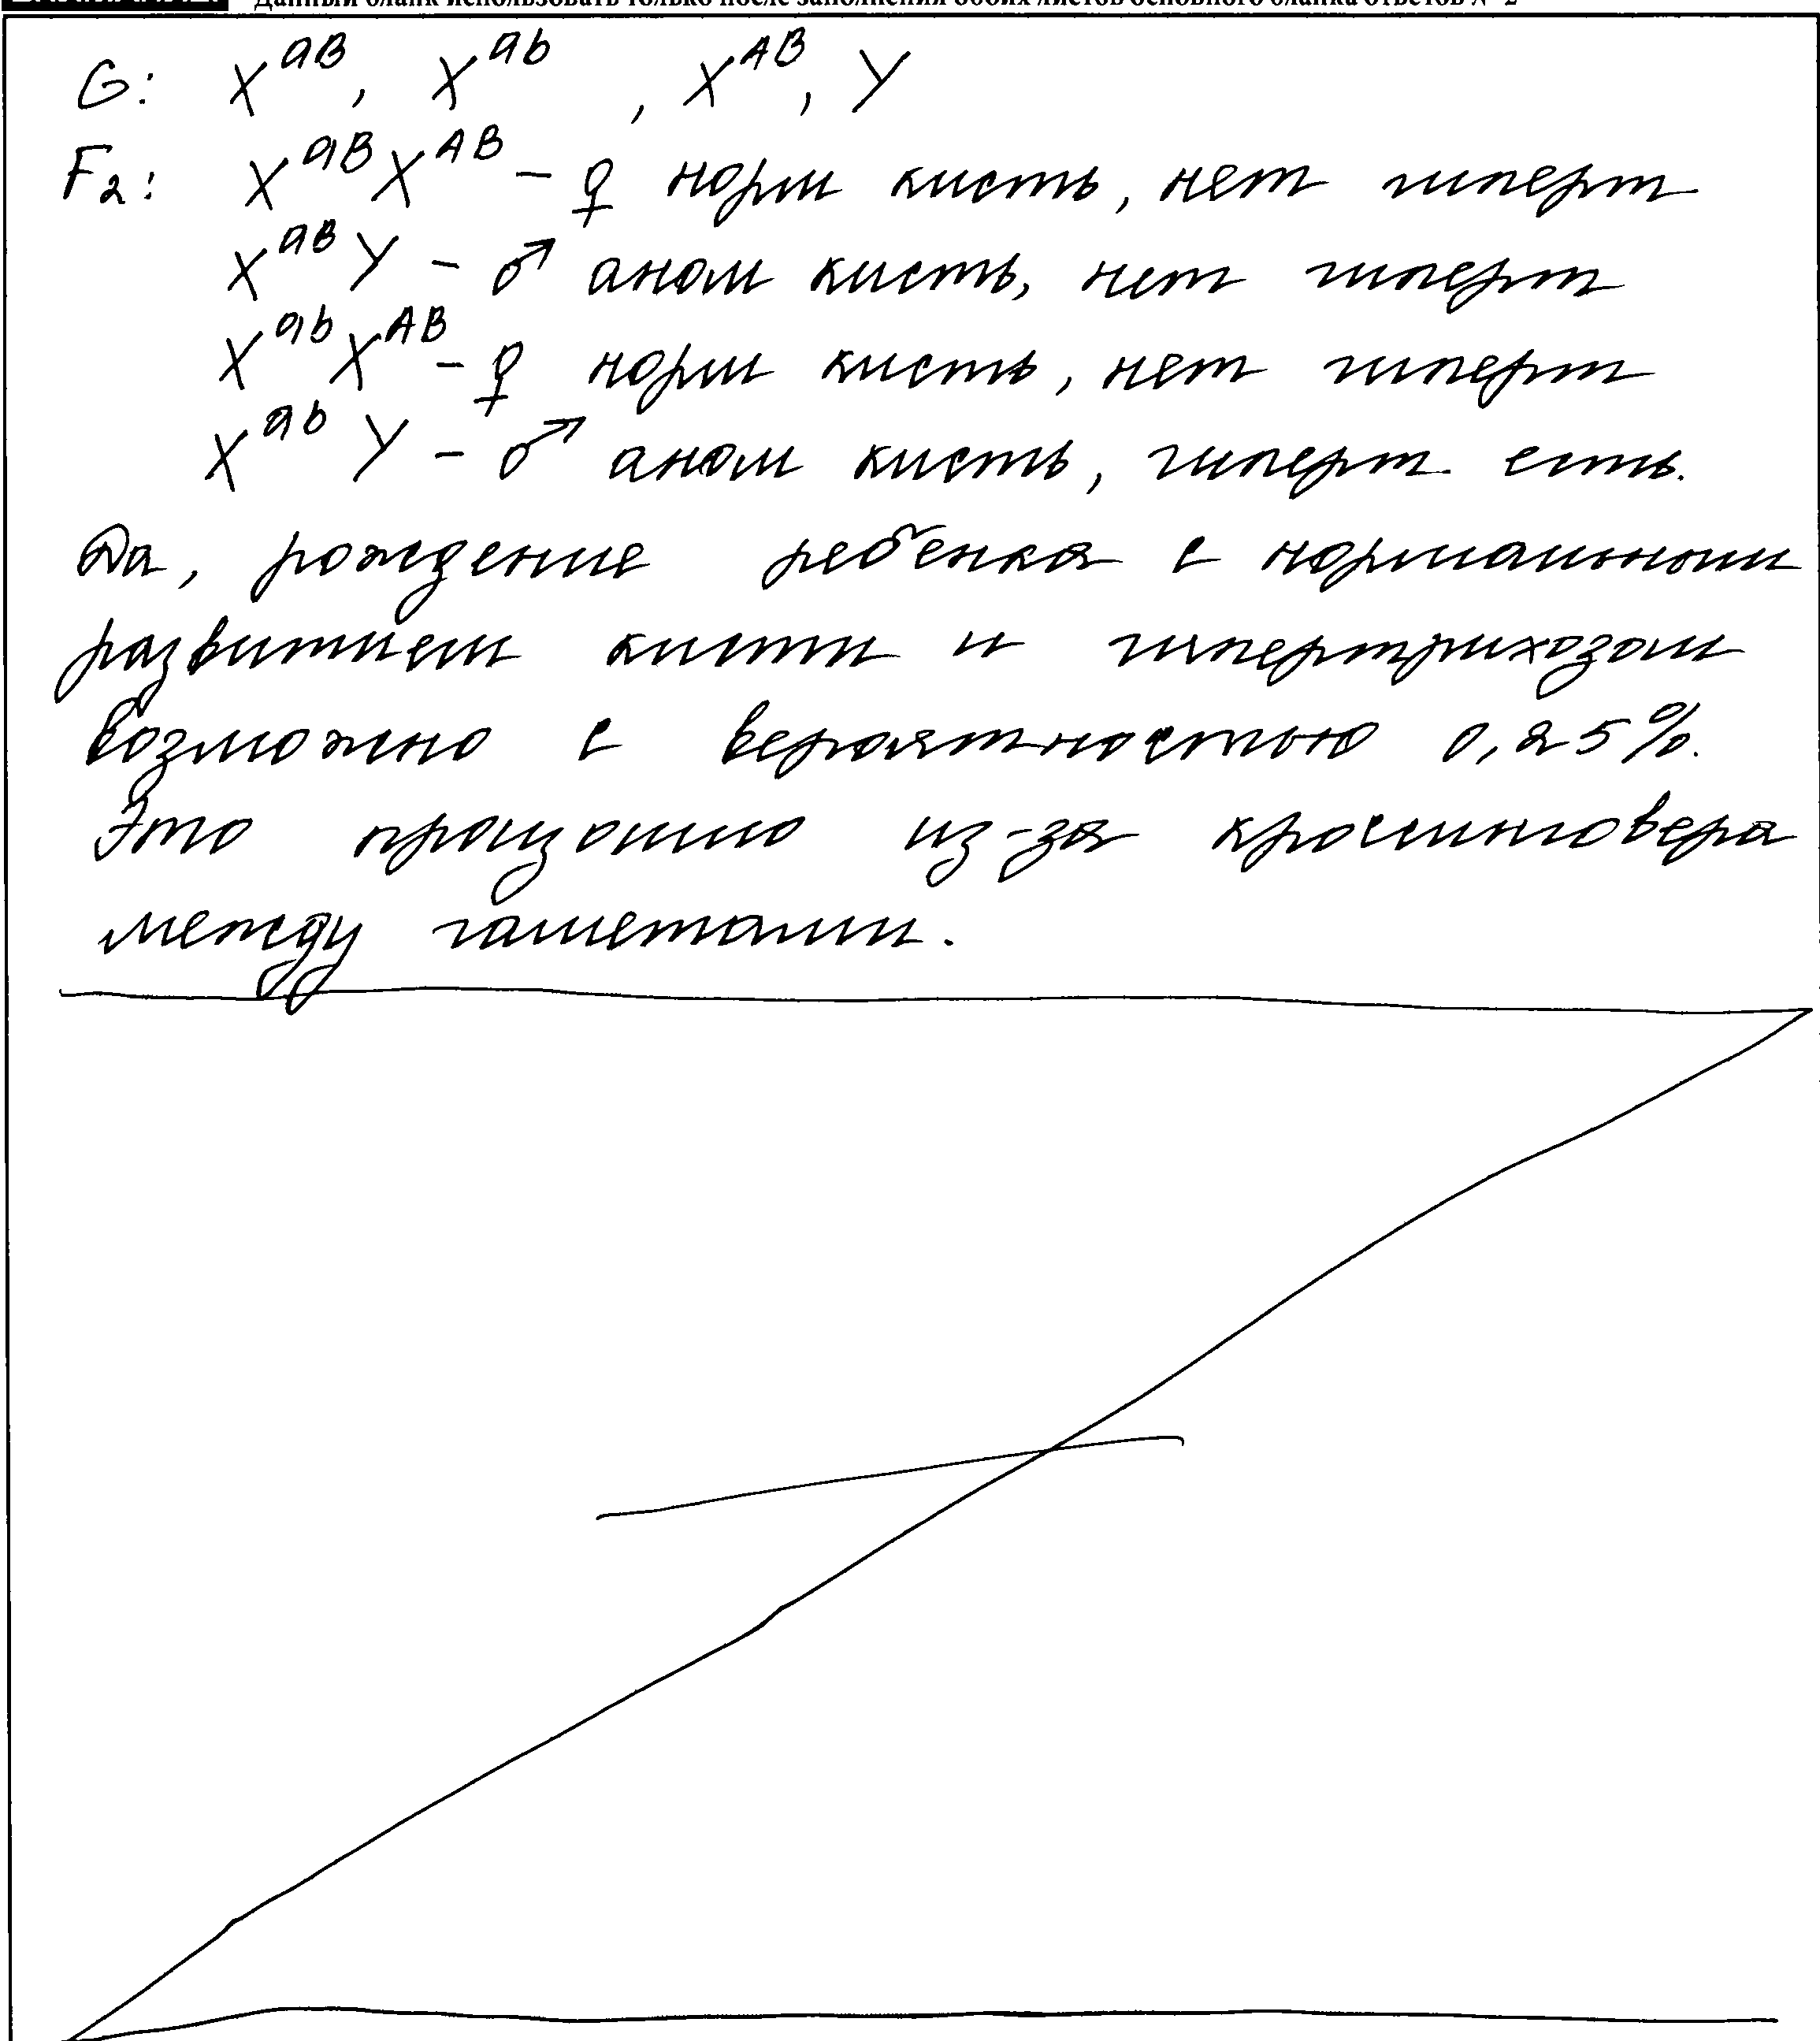 Данный бланк использовать только после заполнения обоих листов основного бланка ответов № 2
G: X^aB, X^ab, X^AB, Y
F₂: X^aB X^AB – ♀ норм кисть, нет гиперт
X^aB Y – ♂ аном кисть, нет гиперт
X^ab X^AB – ♀ норм кисть, нет гиперт
X^ab Y – ♂ аном кисть, гиперт. есть.
Да, рождение ребенка с нормальным
развитием кисти и гипертрихозом
возможно с вероятностью 0,25%.
Это произошло из-за кроссинговера
между гаметами.